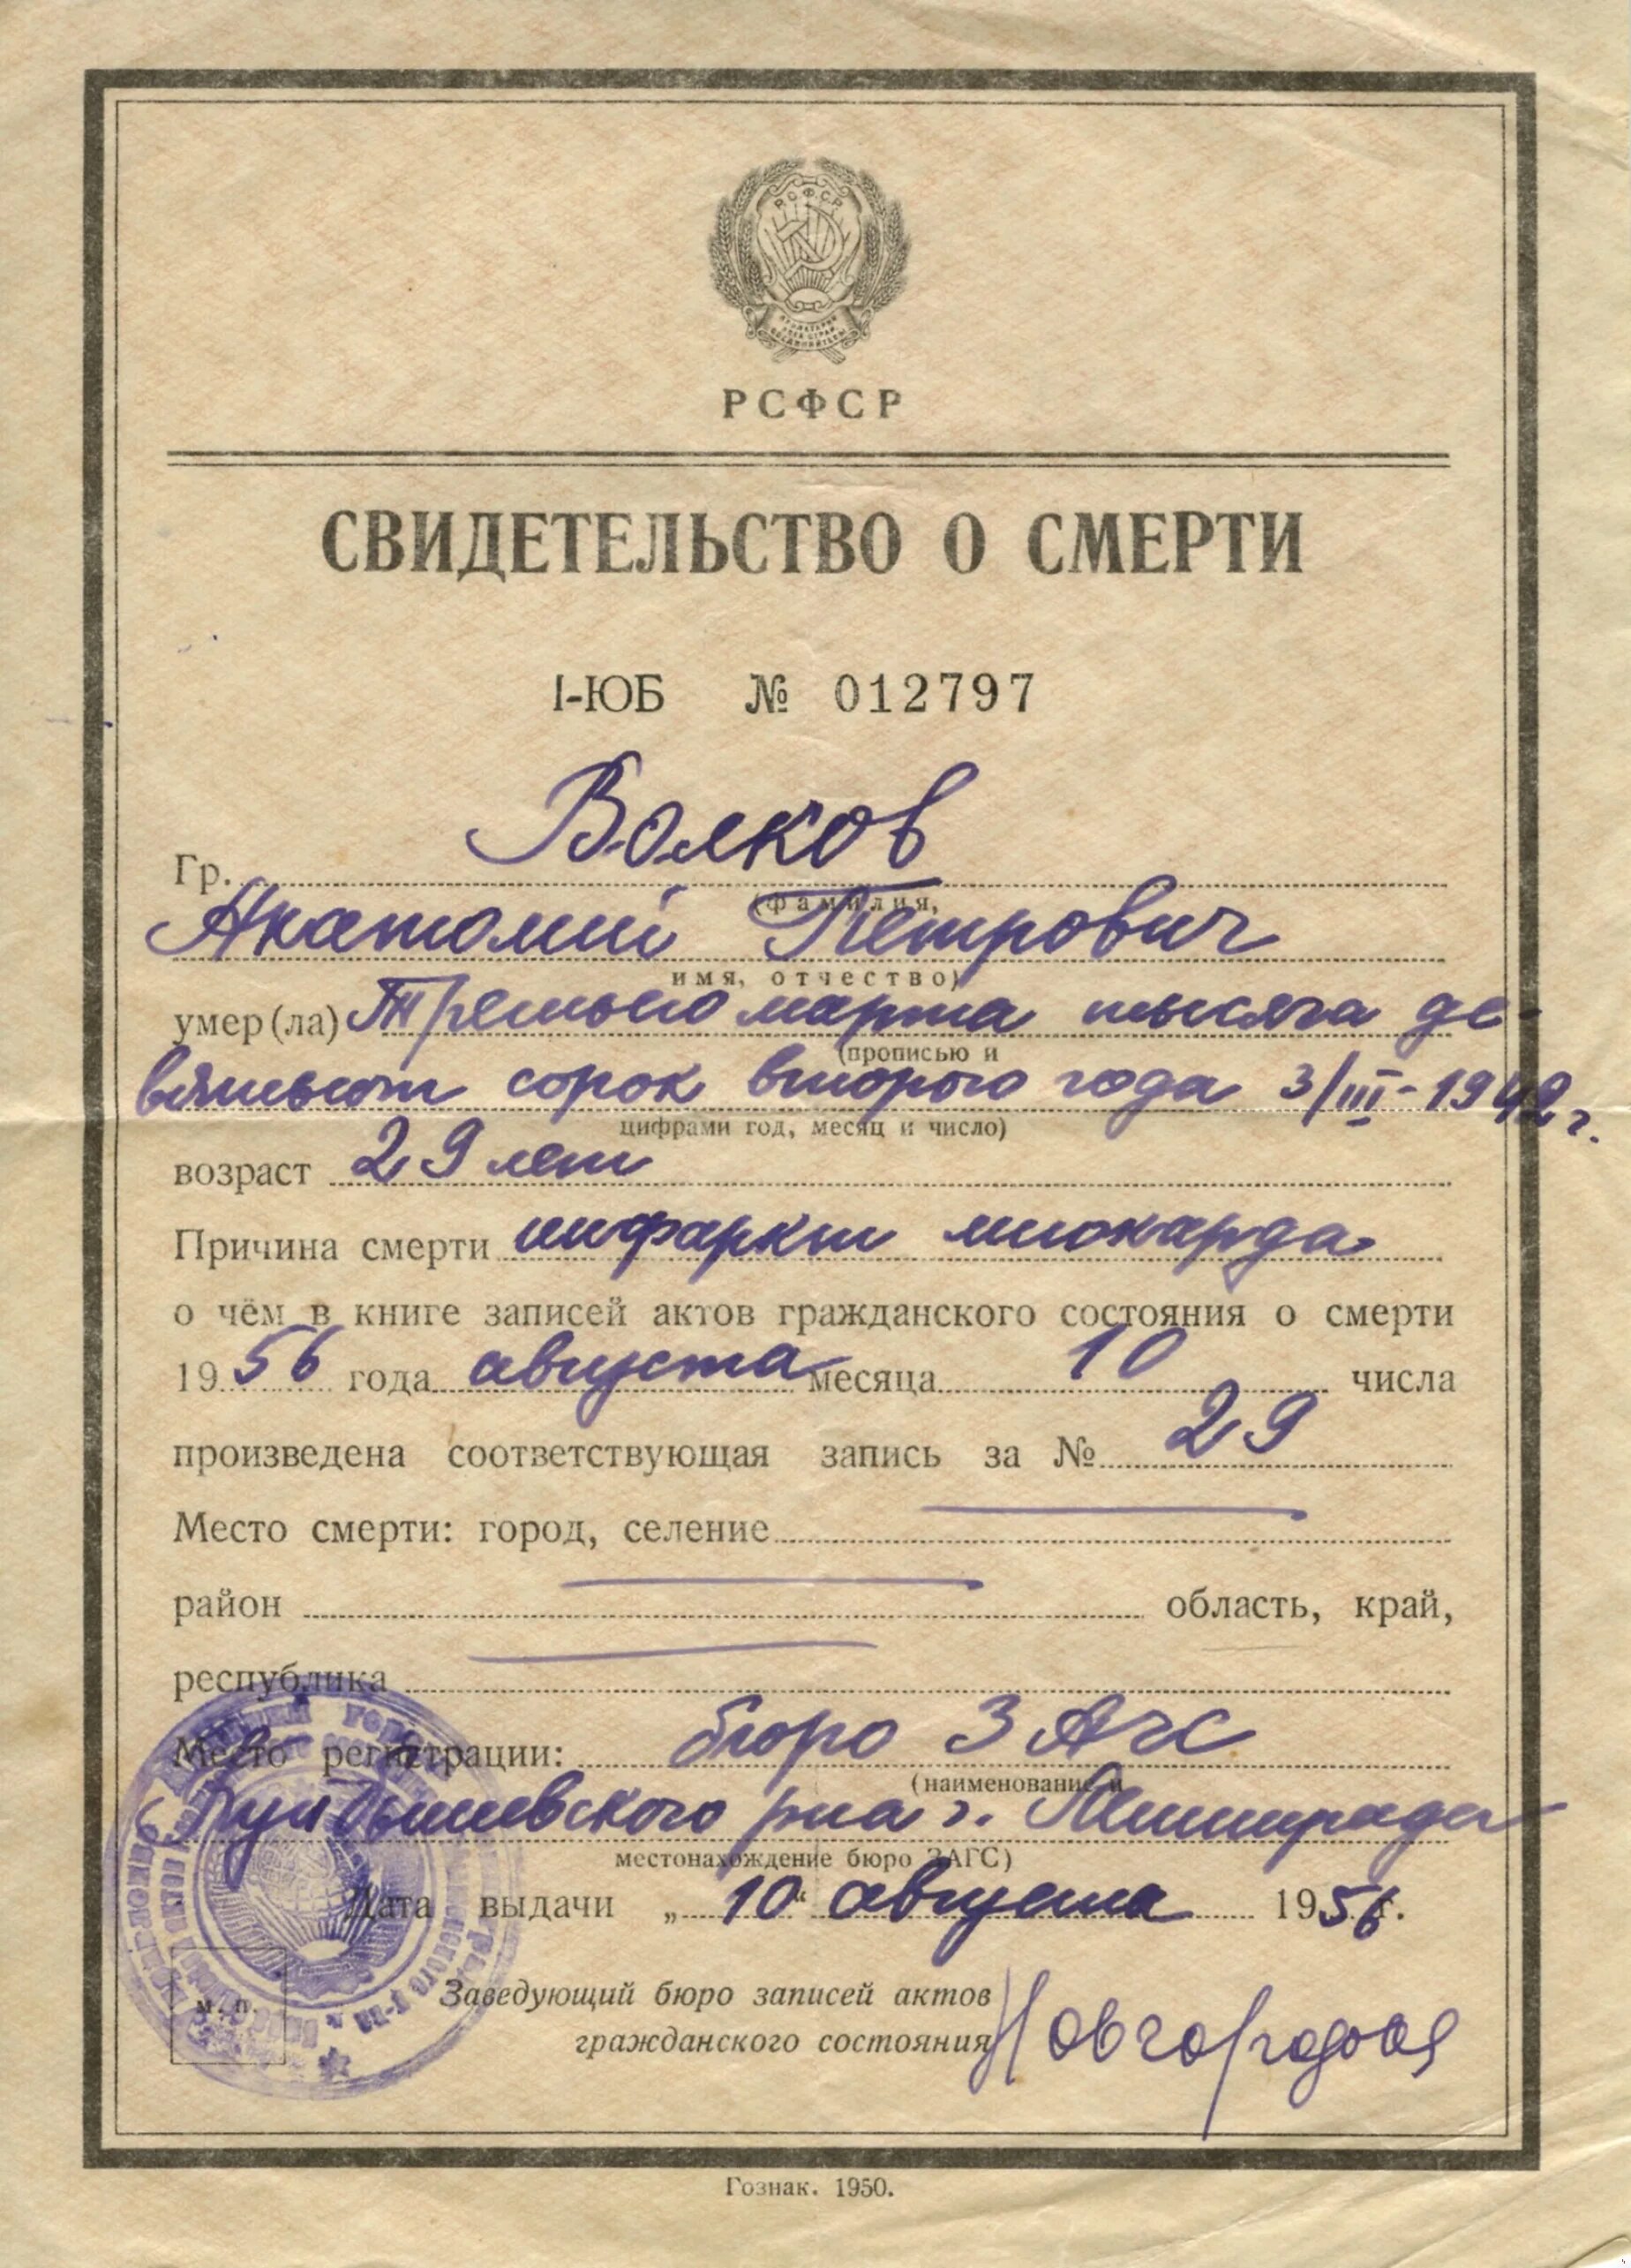 РСФСР
ПРОЛЕТАРИИ
ВСЕХ СТРАН
СОЕДИНЯЙТЕСЬ
РСФСР
СВИДЕТЕЛЬСТВО О СМЕРТИ
I-ЮБ № 012797
Гр. Волков
(фамилия,
Анатолий Петрович
имя, отчество)
умер(ла) Третьего марта тысяча де-
(прописью и
вятьсот сорок второго года 3/III-1942 г.
цифрами год, месяц и число)
возраст 29 лет
Причина смерти инфаркт миокарда
о чём в книге записей актов гражданского состояния о смерти
1956 года августа месяца 10 числа
произведена соответствующая запись за № 29
Место смерти: город, селение
район область, край,
республика
Место регистрации: бюро ЗАГС
(наименование и
Куйбышевского р-на г. Ленинграда
местонахождение бюро ЗАГС)
Дата выдачи „10“ августа 1956 г.
м. п.
Заведующий бюро записей актов
гражданского состояния
Гознак. 1950.